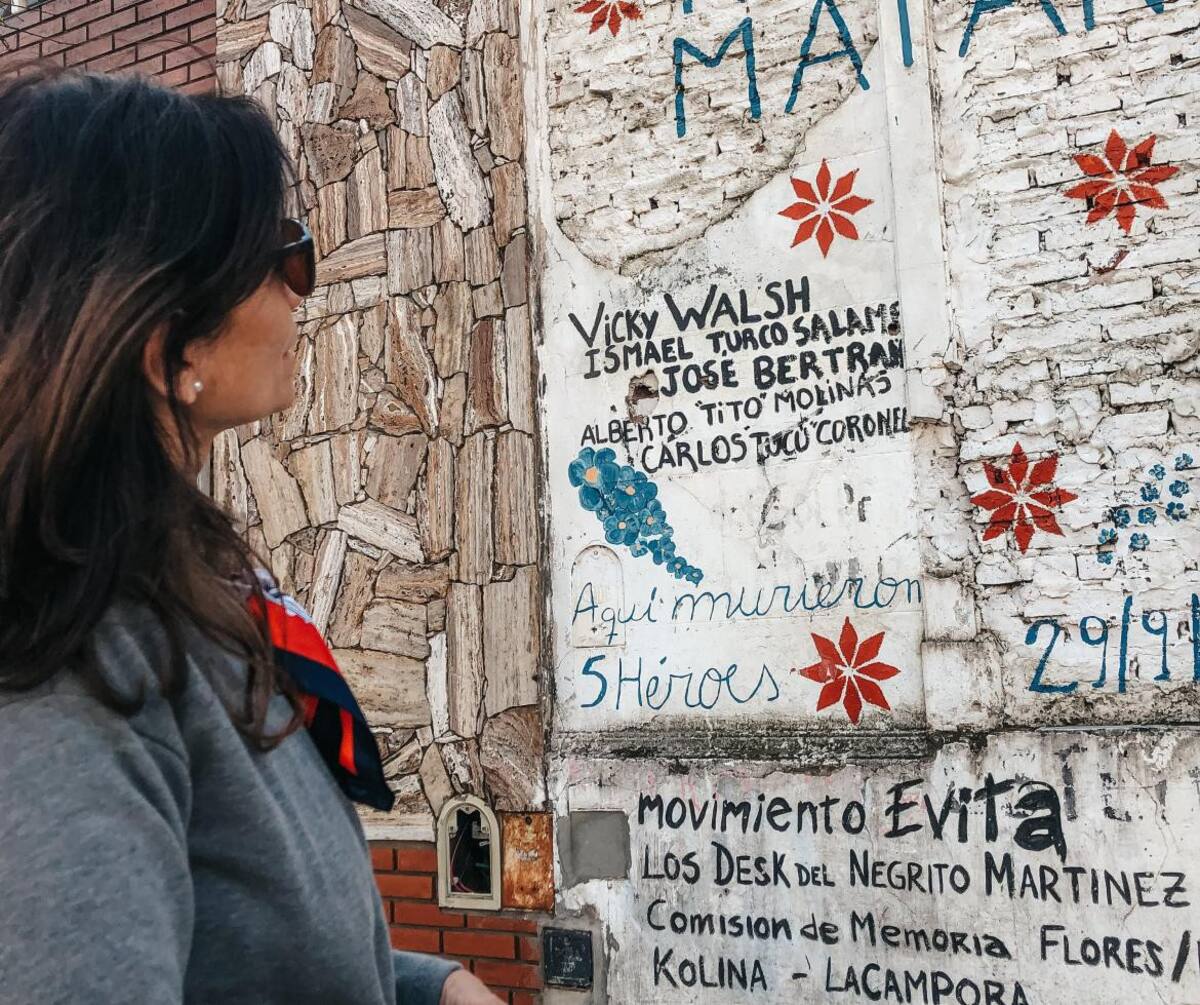 MATAN
VICKY WALSH
ISMAEL TURCO SALAME
JOSÉ BERTRAN
ALBERTO "TITO" MOLINAS
CARLOS TUCU "CORONEL
Aquí murieron
5 Héroes
29/9/
movimiento EVita
LOS DESK DEL NEGRITO MARTINEZ
Comision de Memoria FLORES/
KOLINA - LACAMPORA